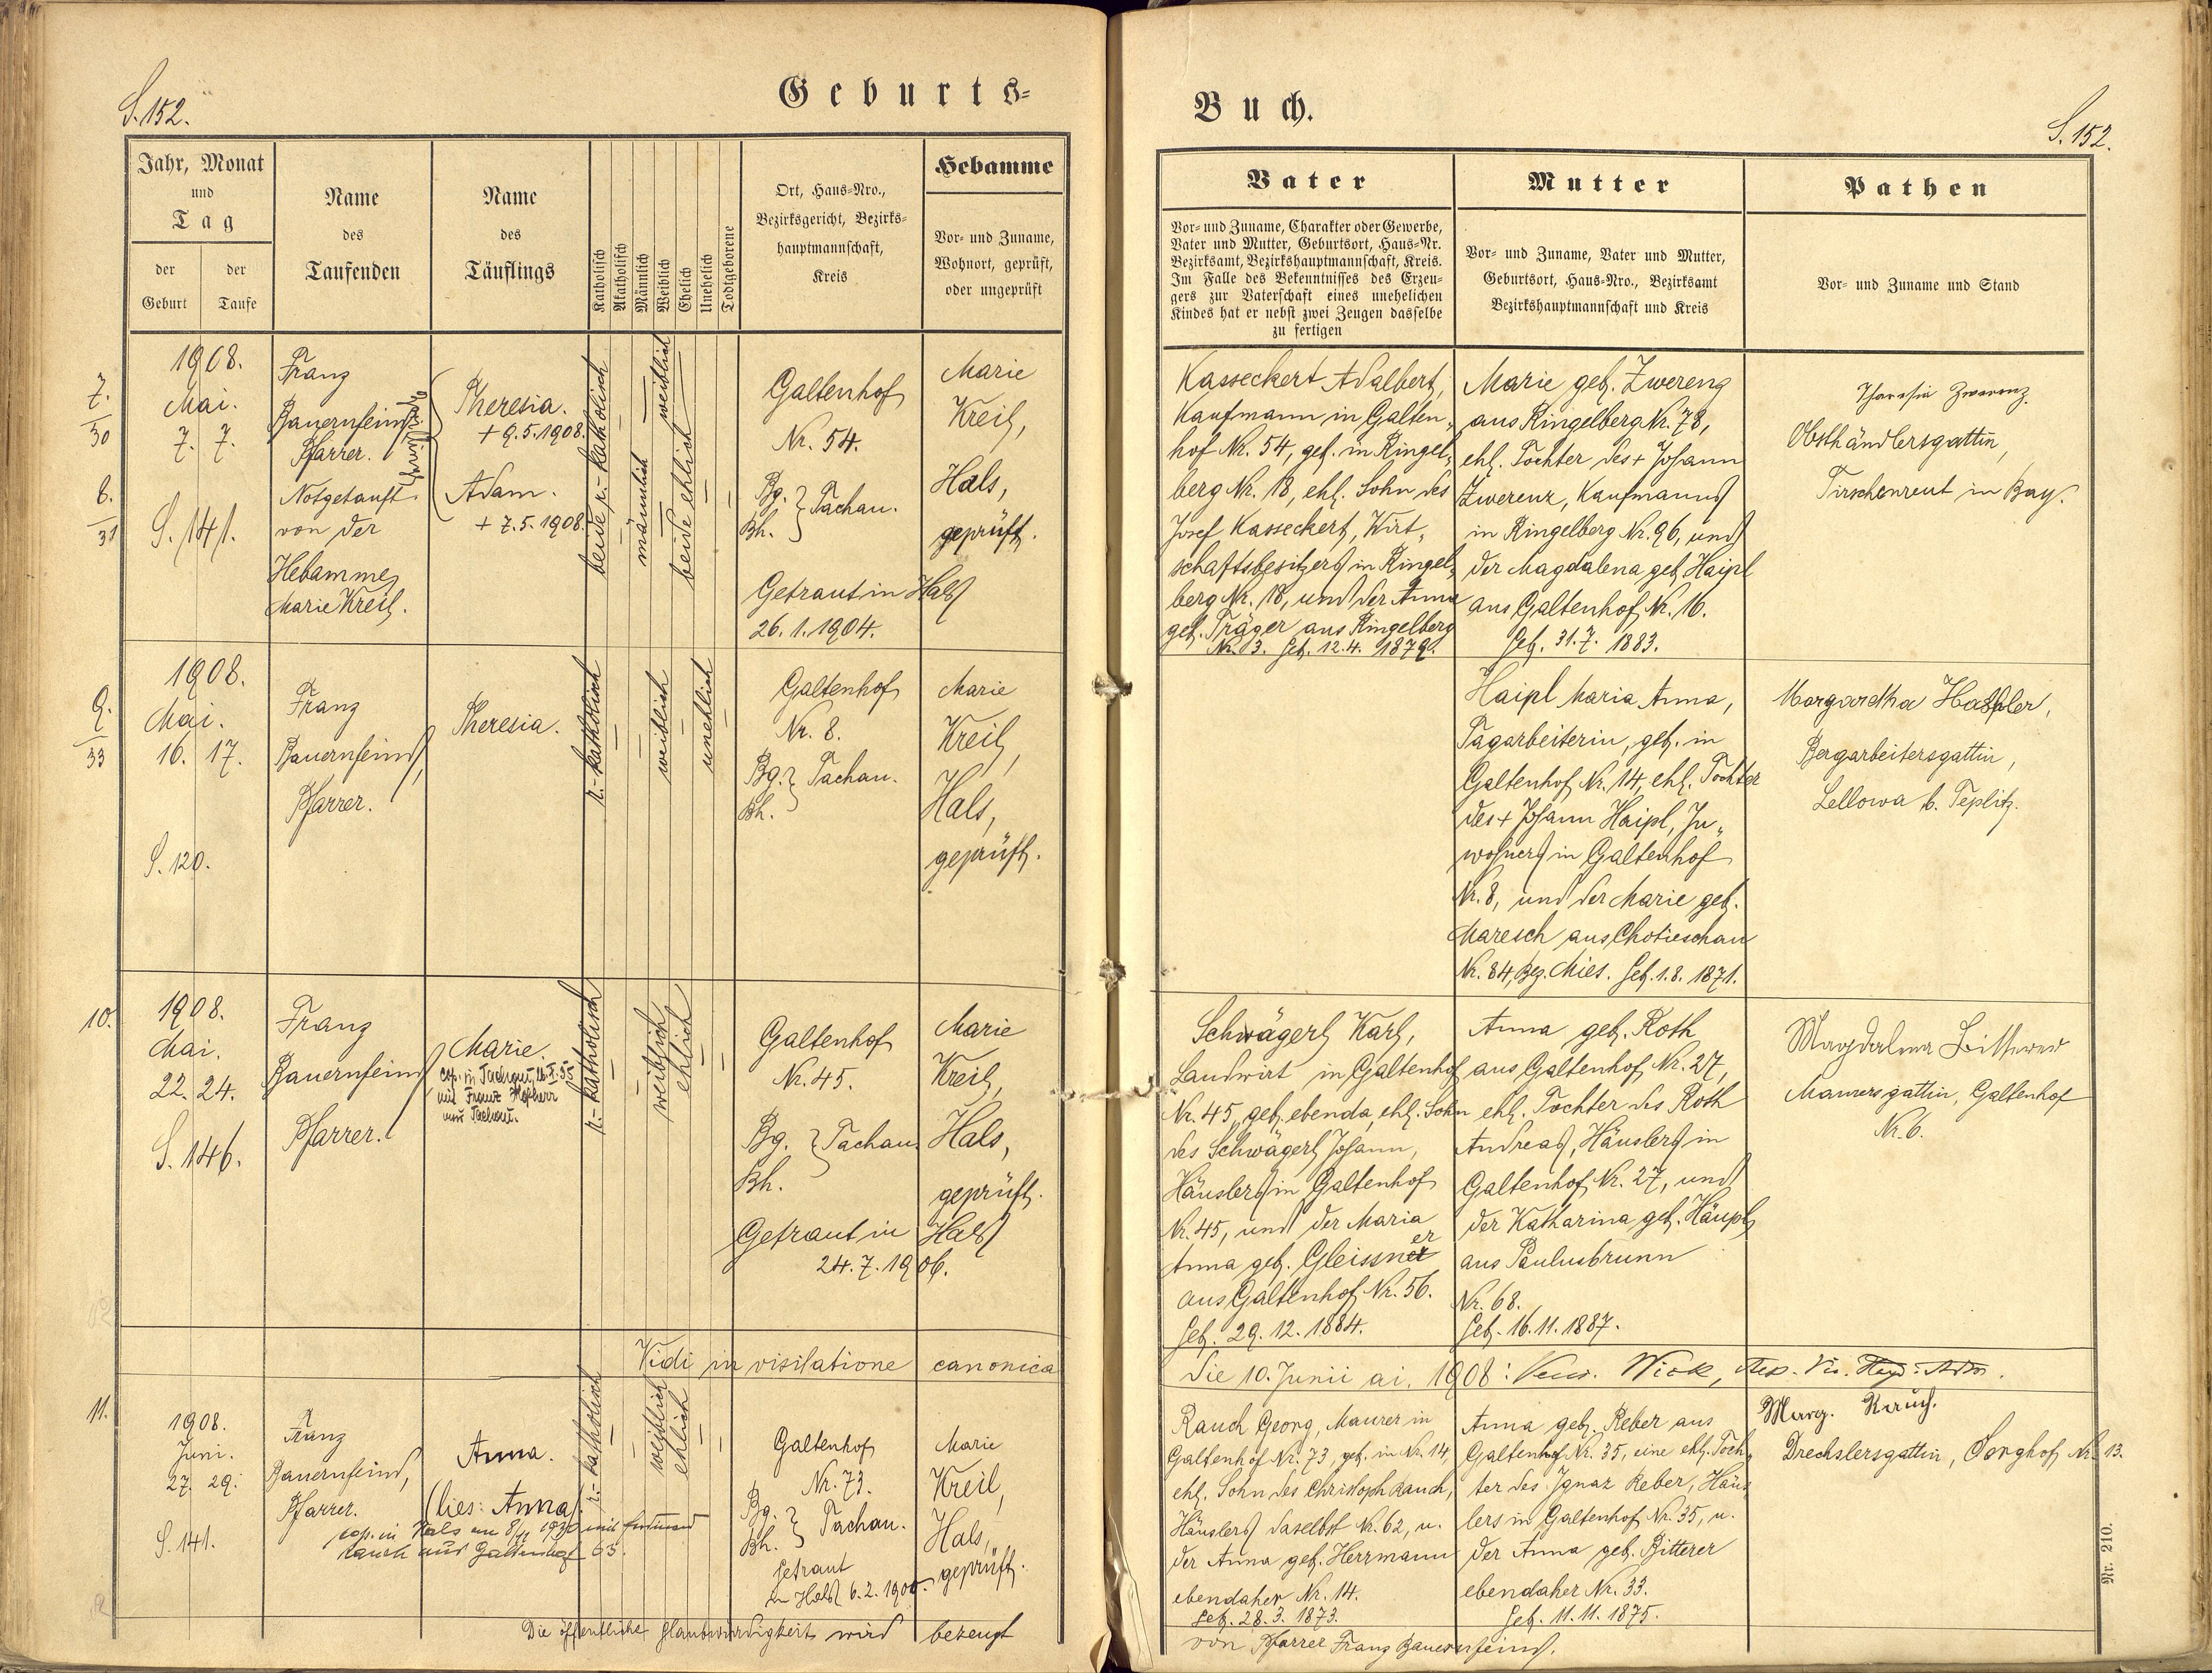 S. 152.
Geburts-
Jahr, Monat
und
Tag
der Geburt
der Taufe
Name
des
Taufenden
Name
des
Täuflings
Katholisch
Akatholisch
Männlich
Weiblich
Ehelich
Unehelich
Todtgeborene
Ort, Haus-Nro.,
Bezirksgericht, Bezirks-
hauptmannschaft,
Kreis
Hebamme
Vor- und Zuname,
Wohnort, geprüft,
oder ungeprüft
7.
30
8.
31
1908.
Mai.
7. 7.
S. 141.
Franz
Bauernfeind,
Pfarrer.
Notgetauft
von der
Hebamme
Marie Kreil.
Theresia.
+ 9.5.1908.
Adam.
+ 7.5.1908.
beide r.-katholisch
männlich
weiblich
beide ehlich
Galtenhof
Nr. 54.
Bg.
Bh. } Tachau.
Getraut in Hals
26. 1. 1904.
Marie
Kreil,
Hals,
geprüft.
9.
33
1908.
Mai.
16. 17.
S. 120.
Franz
Bauernfeind,
Pfarrer.
Theresia.
r.-katholisch
weiblich
unehlich
Galtenhof
Nr. 8.
Bg.
Bh. } Tachau.
Marie
Kreil,
Hals,
geprüft.
10.
1908.
Mai.
22. 24.
S. 146.
Franz
Bauernfeind,
Pfarrer.
Marie.
cop. in Tachau,
mit Franz
aus Tachau.
r.-katholisch
weiblich
ehlich
Galtenhof
Nr. 45.
Bg.
Bh. } Tachau.
Getraut in Hals
24. 7. 1906.
Marie
Kreil,
Hals,
geprüft.
Vidi in visitatione canonica
11.
1908.
Juni.
27. 29.
S. 141.
Franz
Bauernfeind,
Pfarrer.
Anna.
(lies: Anna).
cop. in Hals am 8/11 1930 mit Ferdinand
Rauch aus Galtenhof 63.
r.-katholisch
weiblich
ehlich
Galtenhof
Nr. 73.
Bg.
Bh. } Tachau.
Getraut
in Hals 6. 2. 1900.
Marie
Kreil,
Hals,
geprüft.
Die öffentliche Glaubwürdigkeit wird bezeugt
Buch.
S. 152.
Vater
Vor- und Zuname, Charakter oder Gewerbe,
Vater und Mutter, Geburtsort, Haus-Nr.
Bezirksamt, Bezirkshauptmannschaft, Kreis.
Im Falle des Bekenntnisses des Erzeu-
gers zur Vaterschaft eines unehelichen
Kindes hat er nebst zwei Zeugen dasselbe
zu fertigen
Mutter
Vor- und Zuname, Vater und Mutter,
Geburtsort, Haus-Nro., Bezirksamt
Bezirkshauptmannschaft und Kreis
Pathen
Vor- und Zuname und Stand
Kasseckert Adalbert,
Kaufmann in Galten-
hof Nr. 54, geb. in Ringel-
berg Nr. 18, ehl. Sohn des
Josef Kasseckert, Wirt-
schaftsbesitzers in Ringel-
berg Nr. 18, und der Anna
geb. Träger aus Ringelberg
Nr. 3. Geb. 12. 4. 1879.
Marie geb. Zwerenz
aus Ringelberg Nr. 78,
ehl. Tochter des + Johann
Zwerenz, Kaufmanns
in Ringelberg Nr. 96, und
der Magdalena geb. Haipl
aus Galtenhof Nr. 16.
Geb. 31. 7. 1883.
Theresia Zwerenz
Obsthändlersgattin,
Tirschenreut in Bay.
Haipl Maria Anna,
Tagarbeiterin, geb. in
Galtenhof Nr. 14, ehl. Tochter
des + Johann Haipl, In-
wohners in Galtenhof
Nr. 8, und der Marie geb.
Maresch aus Chotieschau
Nr. 84, Bez. Mies. Geb. 1. 8. 1871.
Margaretha
Bergarbeitersgattin,
Lellowa b. Teplitz.
Schwägerl Karl,
Landwirt in Galtenhof
Nr. 45, geb. ebenda, ehl. Sohn
des Schwägerl Johann,
Häuslers in Galtenhof
Nr. 45, und der Maria
Anna geb. Gleissner
aus Galtenhof Nr. 56.
Geb. 29. 12. 1884.
Anna geb. Roth
aus Galtenhof Nr. 27,
ehl. Tochter des Roth
Andreas, Häuslers in
Galtenhof Nr. 27, und
der Katharina geb. Häupl
aus Paulusbrunn
Nr. 68.
Geb. 16. 11. 1887.
Magdalena
Maurersgattin, Galtenhof
Nr. 6.
die 10. Junii ai. 1908:
Rauch Georg, Maurer in
Galtenhof Nr. 73, geb. in Nr. 14,
ehl. Sohn des Christoph Rauch,
Häuslers daselbst Nr. 62, u.
der Anna geb. Herrmann
ebendaher Nr. 14.
Geb. 28. 3. 1873.
Anna geb. Reber aus
Galtenhof Nr. 35, eine ehl. Toch-
ter des Ignaz Reber, Häus-
lers in Galtenhof Nr. 35, u.
der Anna geb. Bitterer
ebendaher Nr. 33.
Geb. 11. 11. 1875.
Marg. Rauch.
Drechslersgattin, Sorghof Nr. 13.
von Pfarrer Franz Bauernfeind.
Nr. 210.